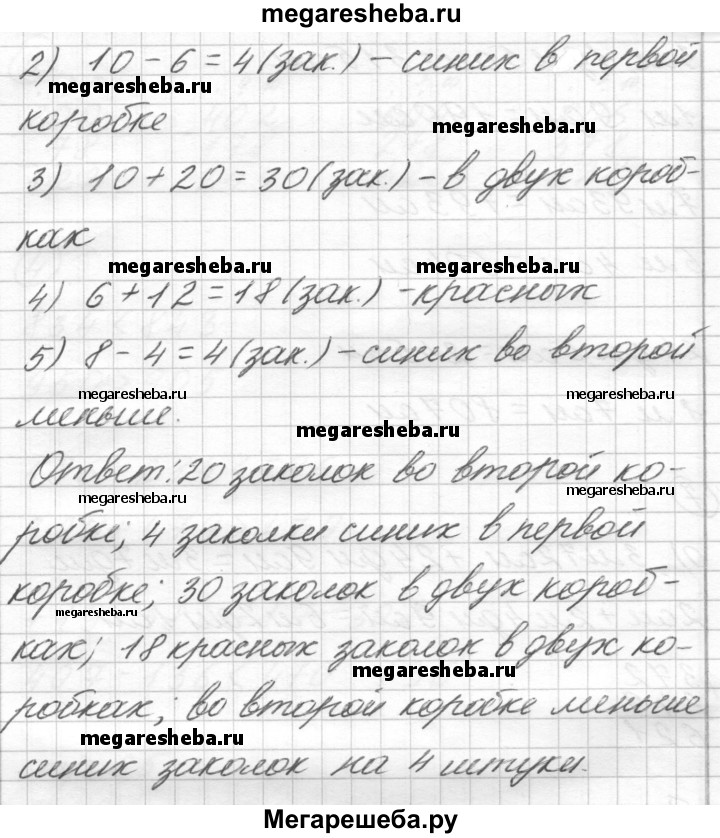 megaresheba.ru
2) 10 - 6 = 4 (зак.) - синих в первой
megaresheba.ru
коробке
megaresheba.ru
3) 10 + 20 = 30 (зак.) - в двух короб-
ках
megaresheba.ru megaresheba.ru
4) 6 + 12 = 18 (зак.) - красных
5) 8 - 4 = 4 (зак.) - синих во второй
megaresheba.ru megaresheba.ru
меньше.
megaresheba.ru
Ответ: 20 заколок во второй ко-
megaresheba.ru megaresheba.ru
робке; 4 заколки синих в первой
коробке; 30 заколок в двух короб-
megaresheba.ru
ках; 18 красных заколок в двух ко-
megaresheba.ru
робках; во второй коробке меньше
megaresheba.ru
синих заколок на 4 штуки.
Мегарешеба.ру